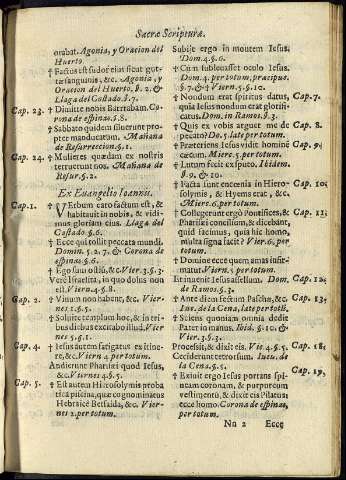 Sacræ Scripturæ.
orabat. Agonia, y Oracion del
Huerto
† Factus est sudor eius sicut gut-
tæ sanguinis, &c. Agonia, y
Oracion del Huerto. §.2. &
Llaga del Costado. §.7.
Cap. 23. † Dimitte nobis Barrabam. Co-
rona de espinas. §.8.
† Sabbato quidem siluerunt pro-
pter mandatum. Mañana
de Resurreccion. §.1.
Cap. 24. † Mulieres quædam ex nostris
terruerunt nos. Mañana de
Resur. §.2.
Ex Euangelio Ioannis.
Cap. 1. † Verbum caro factum est, &
habitauit in nobis, & vidi-
mus gloriam eius. Llaga del
Costado. §.6.
† Ecce qui tollit peccata mundi.
Domin. 5. 2. 7. & Corona de
espinas §.6.
† Ego sum ostiũ, &c. Vier. 3. §.3.
Verè Israelita, in quo dolus non
est. Viern. 4. §.8.
Cap. 2. † Vinum non habent, &c. Vier-
nes 1. §.5.
† Soluite templum hoc, & in tri-
bus diebus excitabo illud. Vier-
nes 5. §.9.1.
Cap. 4. † Iesus autem fatigatus ex itine-
re, &c. Viern. 4. per totum.
Audierunt Pharisei quod Iesus,
&c. Viernes 4. §.5.
Cap. 5. † Est autem Hierosolymis proba
tica piscina, quæ cognominatus
Hebraicè Betsaida, &c. Vier-
nes 2. per totum.
Subijt ergo in montem Iesus.
Dom. 4. §.6.
† Cum subleuasset oculo Iesus.
Dom. 4. per totum, præcipue.
§.7. & † Viern. 5. §.10.
† Nondum erat spiritus datus, Cap. 7.
quia Iesus nondum erat glorifi-
catus. Dom. in Ramos. §.3.
† Quis ex vobis arguet me de Cap. 8.
peccato? Do. 5. late per totum.
† Præteriens Iesus vidit hominẽ Cap. 9.
cæcum. Mierc. 5. per totum.
† Lutum fecit ex sputo. Ibidem.
§.9. & 10.
† Facta sunt encenia in Hiero- Cap. 10.
solymis, & Hyems erat, &c.
Mierc. 6. per totum.
† Collegerunt ergo Pontifices, & Cap. 11.
Pharisæi concilium, & dicebant,
quid facimus, quia hic homo,
multa signa facit? Vier. 6. per
totum.
† Domine ecce quem amas infir-
matur. Viern. 5 per totum.
Et inuenit Iesus asellum. Dom. Cap. 12.
de Ramos §.3.
† Ante diem festum Paschæ, &c. Cap. 13.
Iue. de la Cena, late per totũ.
† Sciens quoniam omnia dedit
Pater in manus. Ibid. §.10. &
Vier. 3. §.3.
Processit, & dixit eis. Vie. 4. §.5. Cap. 18.
Ceciderunt retrorsum. Iueu. de
la Cena. §.5.
† Exiuit ergo Iesus portans spi- Cap. 19.
neam coronam, & purpureum
vestimentũ, & dixit eis Pilatus:
ecce homo. Corona de espinas,
per totum.
Nn 2 Ecce